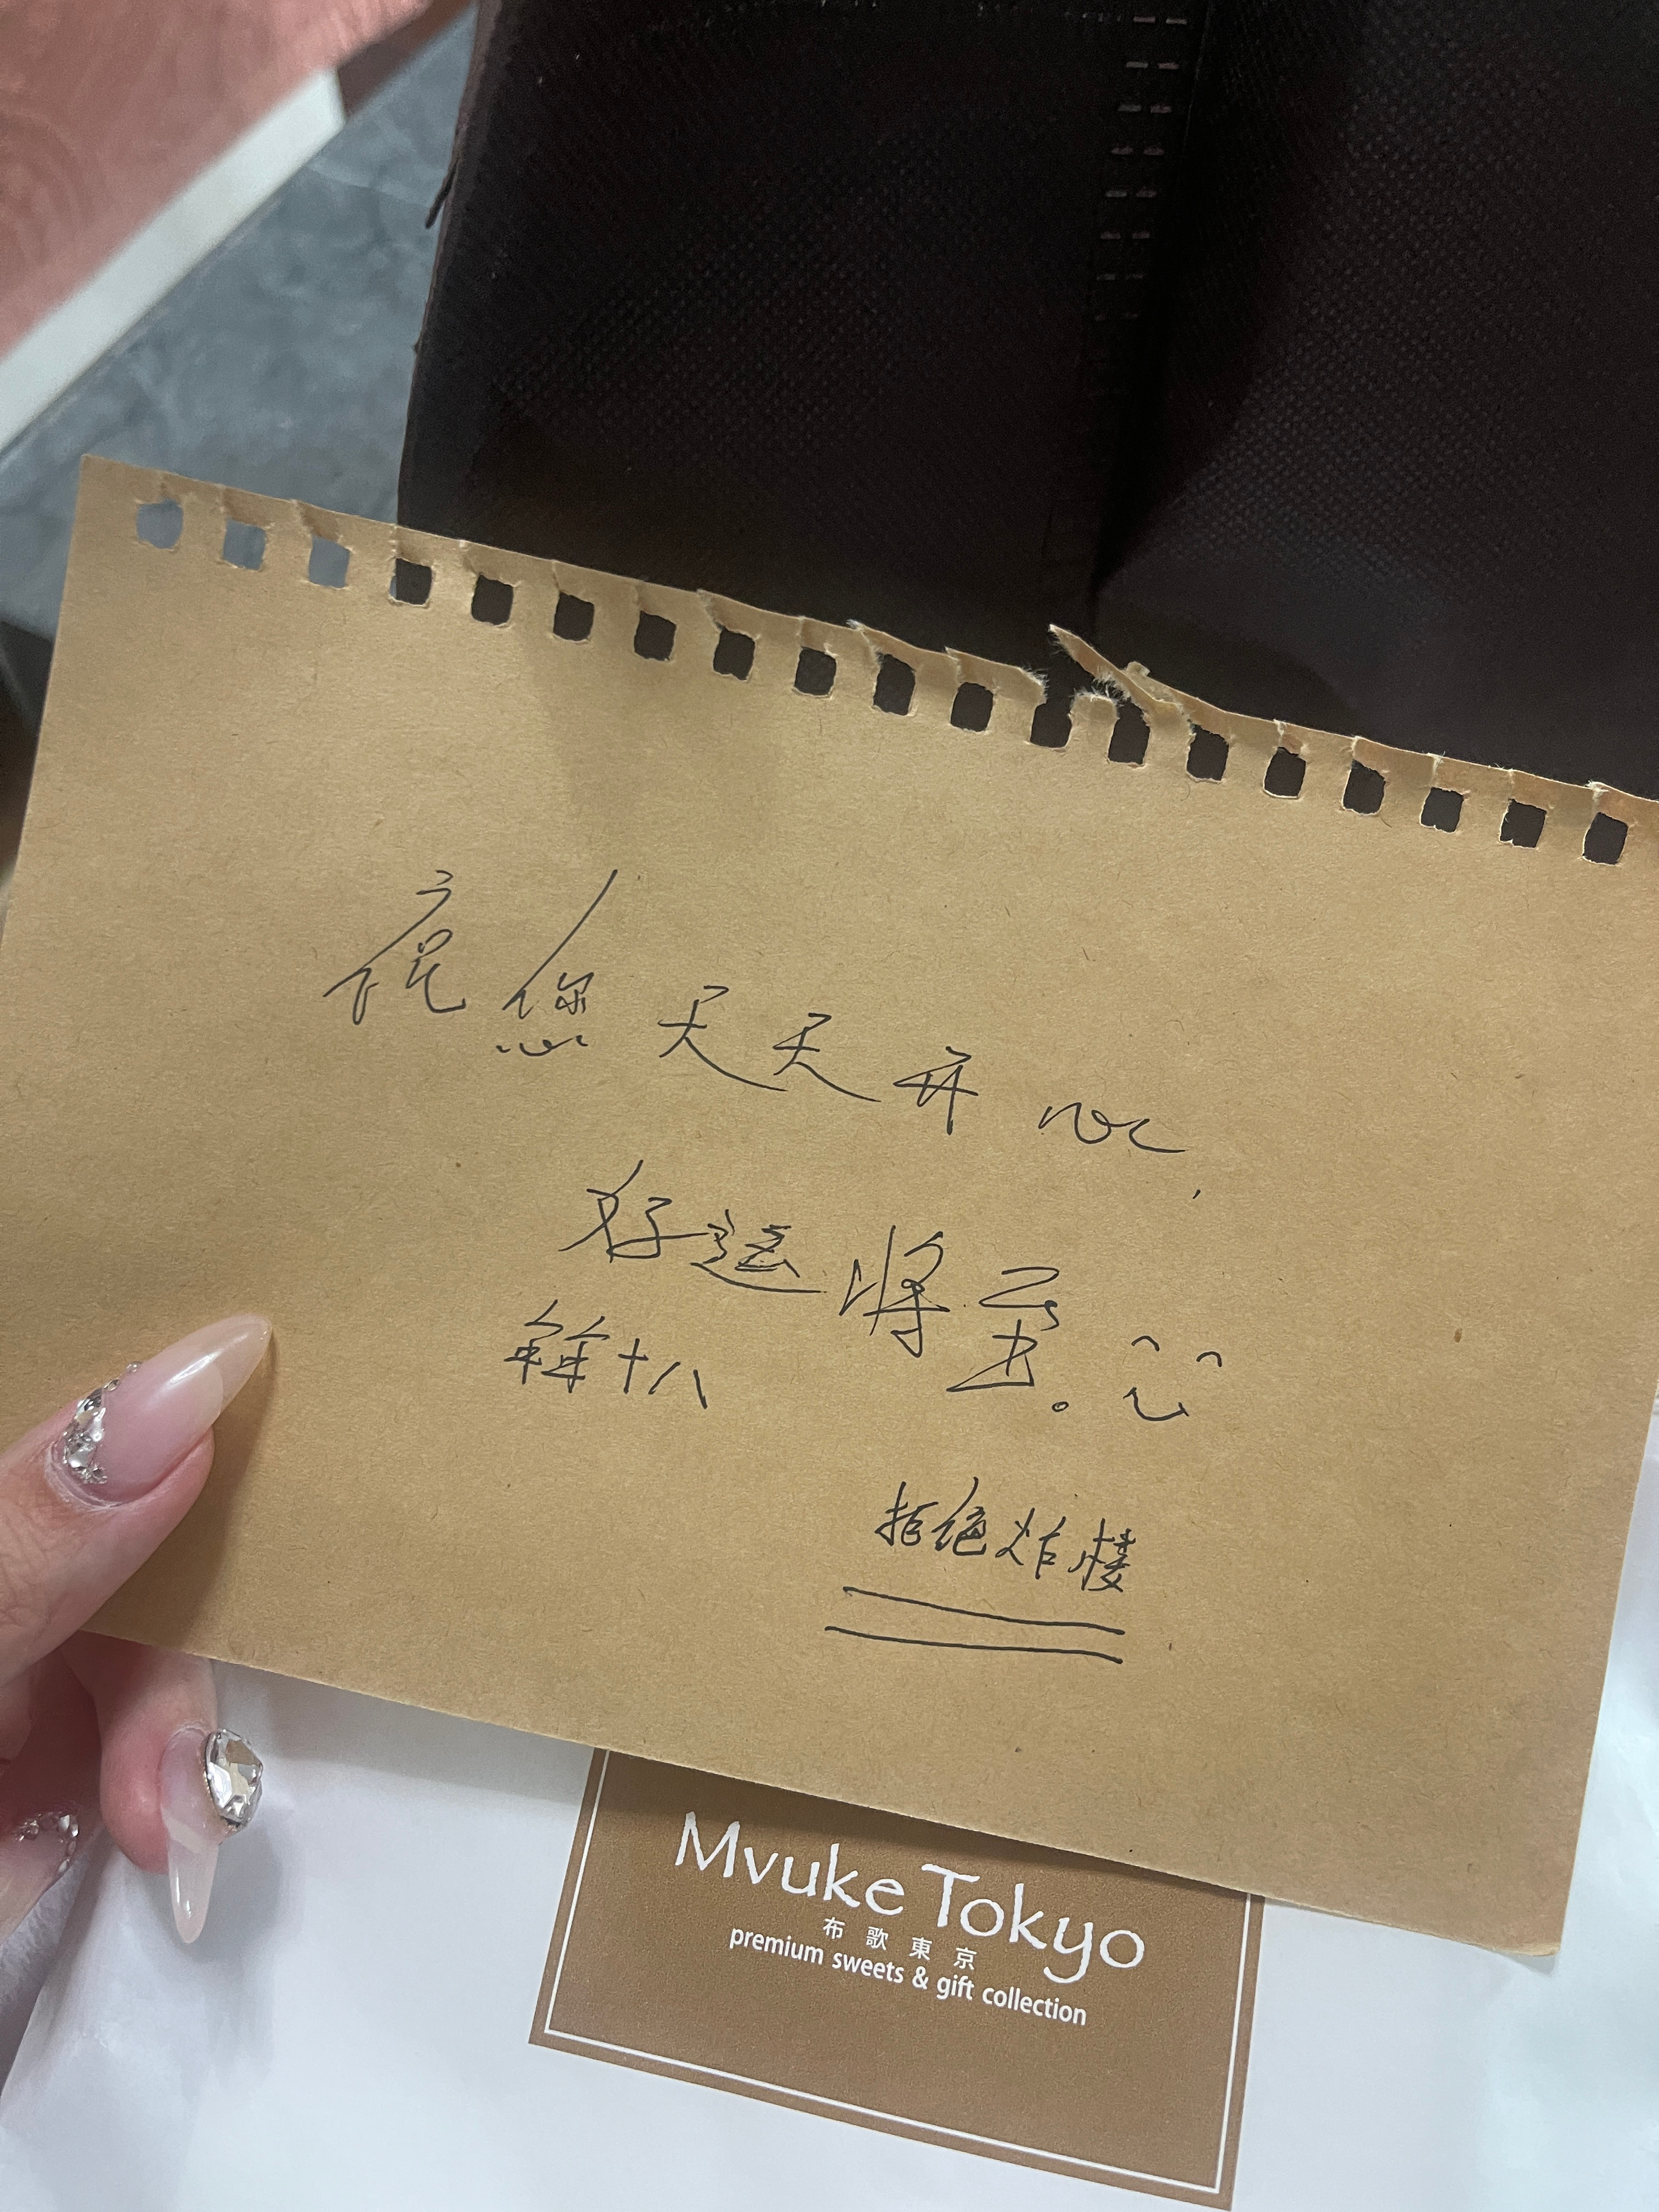 祝您天天开心,
好运将至。
年年十八
拒绝炸楼
Mvuke Tokyo
布歌東京
premium sweets & gift collection